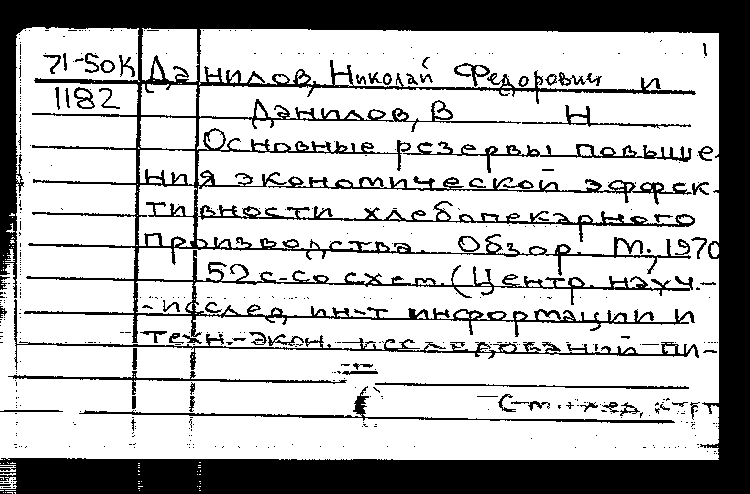 1
71-50К Данилов, Николай Федорович и
1182 Данилов, В Н
Основные резервы повыше
ния экономической эффек-
тивности хлебопекарного
производства. Обзор. М., 1970
52 с. со схем. (Центр. науч.-
-исслед. ин-т информации и
техн.-экон. исследований пи-
См. след.